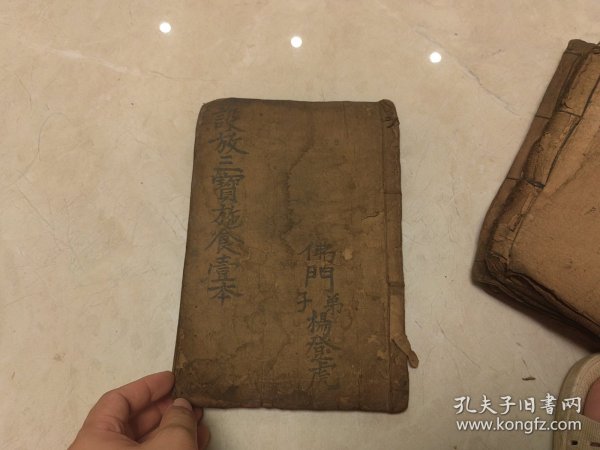 設放三寶施食壹本
佛門弟子楊登
孔夫子旧书网
www.kongfz.com